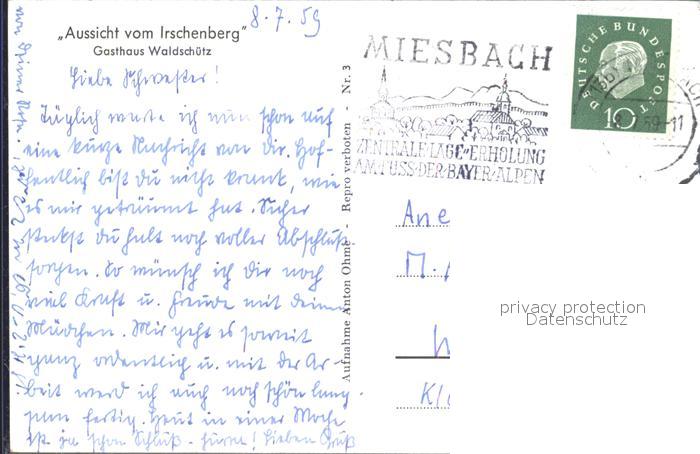 8.7.59
„Aussicht vom Irschenberg"
Gasthaus Waldschütz
Liebe Schwester!
Täglich warte ich nun schon auf
eine kurze Nachricht von dir. Hof-
fentlich bist du nicht krank, wie
es mir geträumt hat. Sicher
steckst du halt noch voller Abschluß-
sorgen. So wünsch ich dir noch
viel Kraft u. Freude mit deinen
Mädchen. Mir geht es soweit
ganz ordentlich u. mit der Ar-
beit werd ich auch noch schön lang-
sam fertig. Heut in einer Woche
ist ja schon Schluß - hurra! Lieben Gruß
von deiner
Aufnahme Anton Ohme - Repro verboten - Nr. 3
MIESBACH
ZENTRALE LAGE-ERHOLUNG
AM FUSS DER BAYER. ALPEN
DEUTSCHE BUNDESPOST
10
59-11
Ane
M.
Kl
privacy protection
Datenschutz